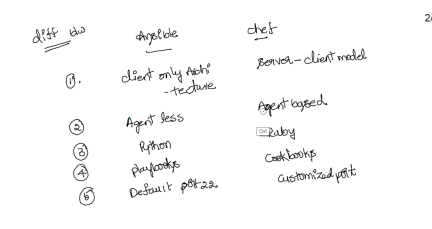 diff b/w Ansible chef
①. client only Archi-tecture server-client model
② Agent less Agent based
③ Python Ruby
④ playbooks Cookbooks
⑤ Default port 22 customized port